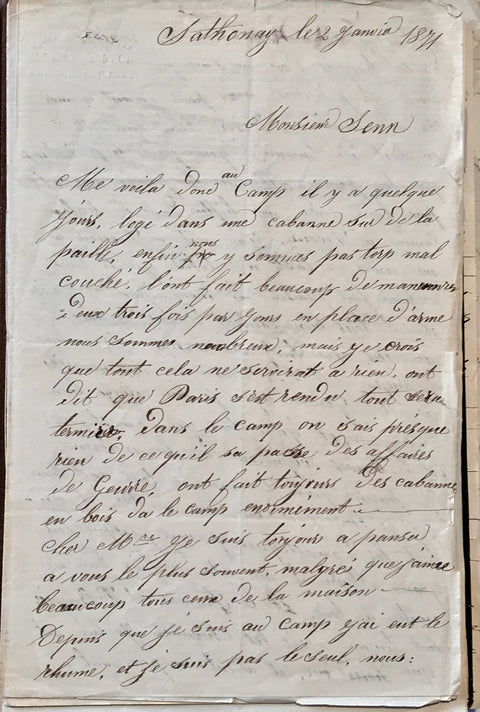 Sathonay le 2 Janvié 1871
Monsieur Senn
Me voila donc au Camp il y a quelque
jours, logé dans une cabanne sur de la
paille, enfin nous y sommes pas torp mal
couché, l'ont fait beaucoup de maneuvres
deux trois fois par jours en place d'arme
nous sommes nombreux, mais je crois
que tout cela ne servirat a rien, ont
dit que Paris s'est rendu tout sera
terminer, dans le camp on sais présque
rien de ce qu'il sa passe des affaires
de Geurre ont fait toujours des cabannes
en bois dà le camp enormiment
Cher Mr je suis torjour a pansa
a vous le plus souvent, malgré que j'aime
beaucoup tous ceux de la maison
Depuis que je suis au camp j'ai eut le
rhume, et je suis pas le seul, nous: